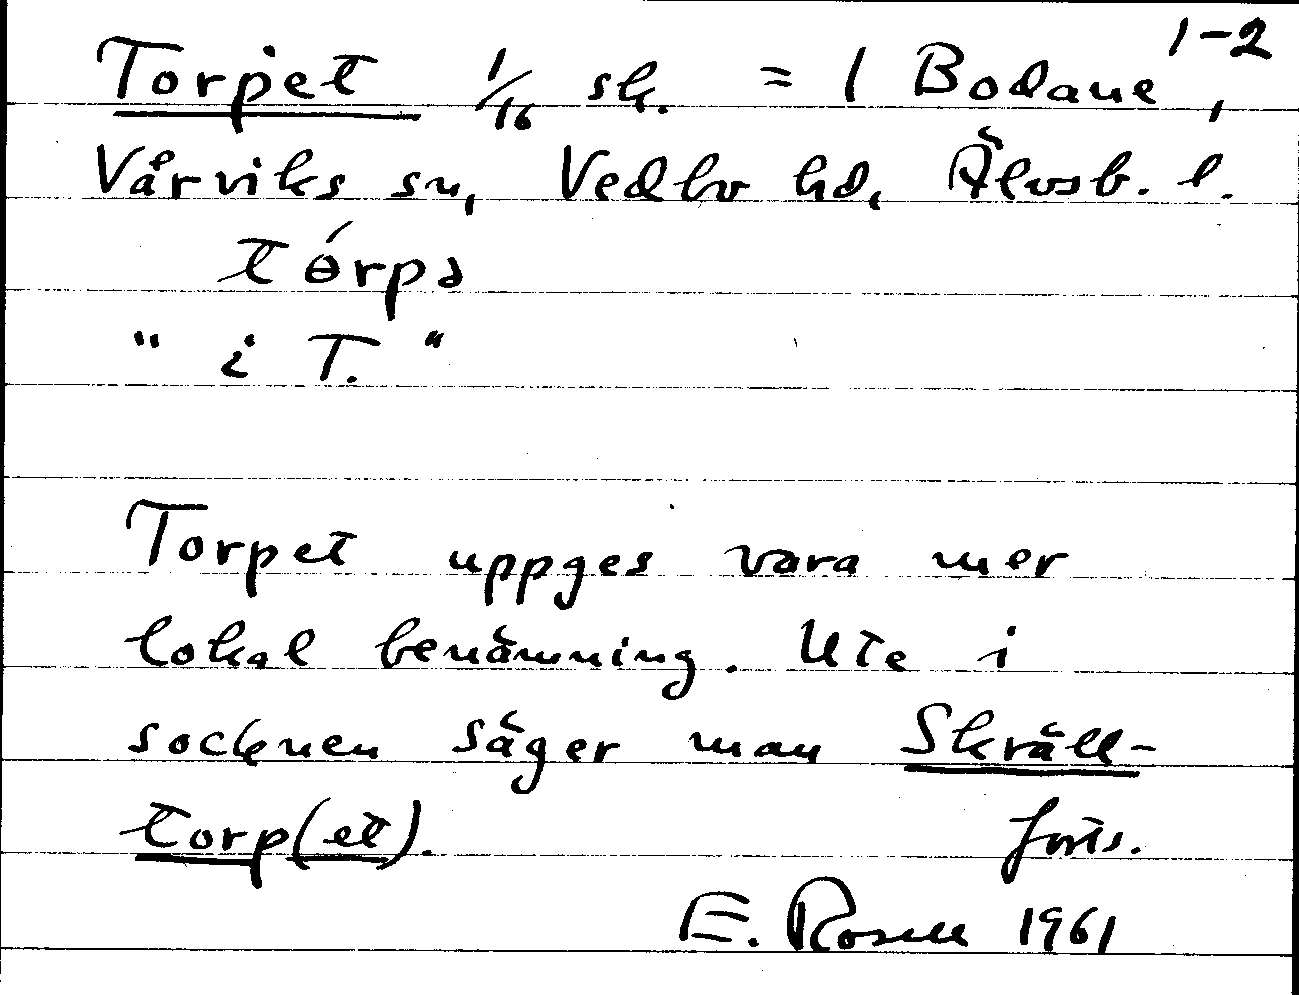 Torpet 1/16 sk. = 1 Bodane 1-2,
Vårviks sn, Vedbo hd, Älvsb. l.
tɵ́rpə
" i T. "
Torpet uppges vara mer
lokal benämning. Ute i
socknen säger man Skräll-
torp(et). forts.
E. Rosell 1961